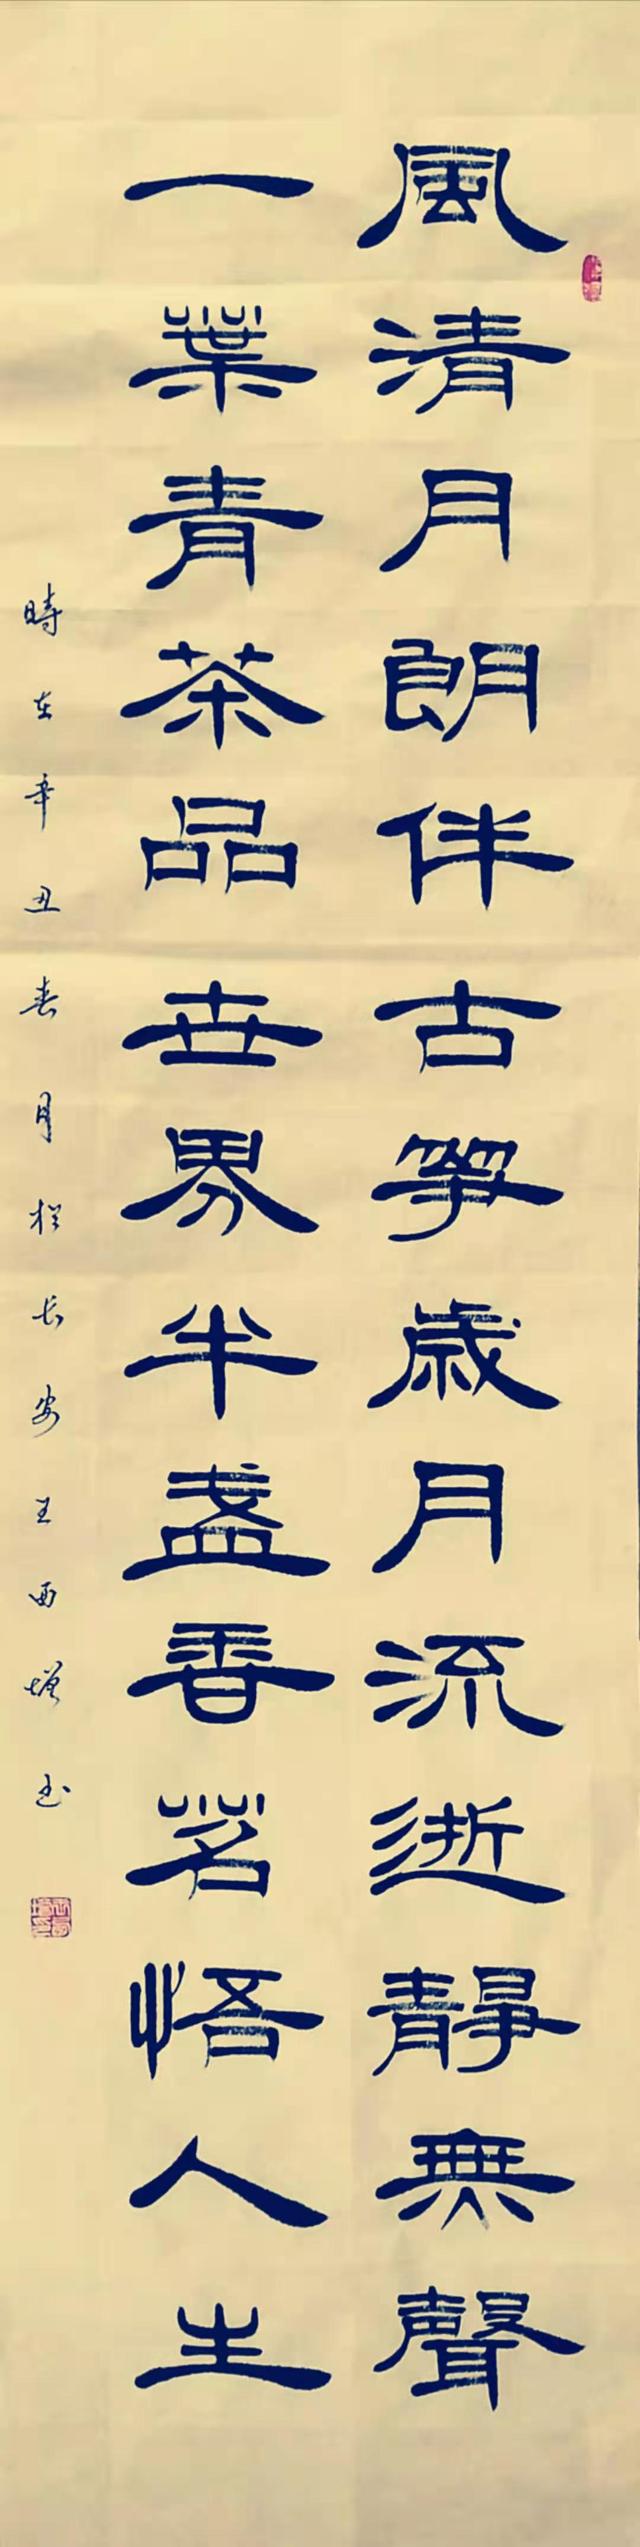 風清月朗伴古筝歲月流逝靜無聲
一葉青茶品世界半盞香茗悟人生
時在辛丑春月於長安王西增書